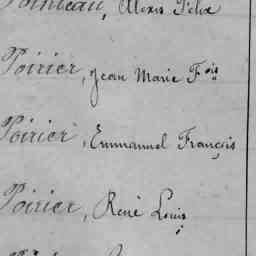 Alexis Félix
Poirier, Jean Marie Fois
Poirier, Emmanuel François
Poirier, René Louis